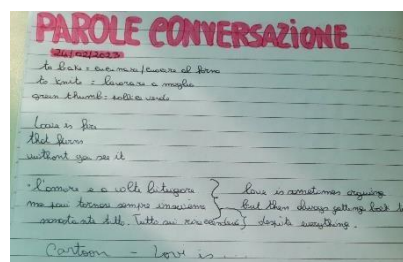 PAROLE CONVERSAZIONE
24/02/2023
to bake = cucinare/cuocere al forno
to knit = lavorare a maglia
green thumb = pollice verde
Love is fire
that burns
without you see it
L'amore è a volte litigare
ma poi tornare sempre insieme
Tutto
love is sometimes arguing
but then always getting back
despite everything.
Cartoon - Love is ....